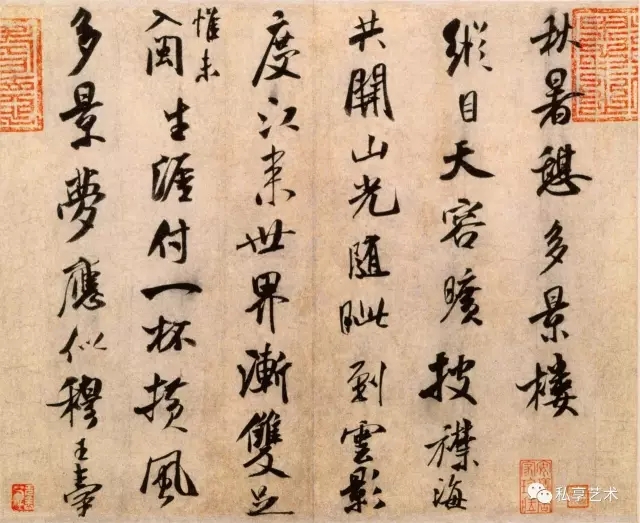 秋暑憩多景樓
縱目天容曠披襟海
共開山光隨眦到雲影
度江來世界漸雙足
惟未
入閩生涯付一杯橫風
多景夢應似穆王臺
私享艺术